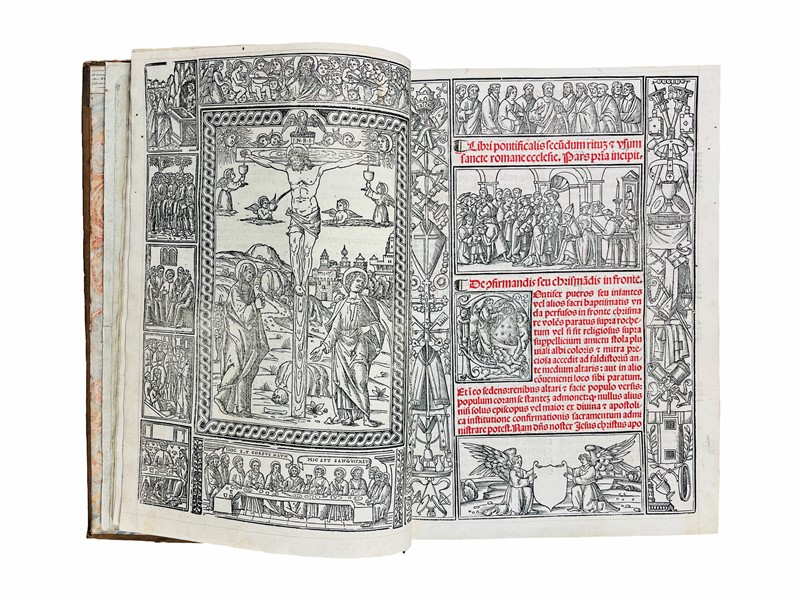 INRI
HIC EST SANGVIS
Libri pontificalis secūdum rituʒ ⁊ vsum
sancte romane ecclesie. Pars pria incipit.
De ꝯfirmandis seu chrismādis in fronte.
Pontifex pueros seu infantes
vel alios sacri baptismatis vn
da perfusos in fronte chrisma
re volēs paratus supra roche-
tum vel si sit religiosus supra
suppellicium amictu stola plu
uiali albi coloris ⁊ mitra pre
ciosa accedit ad faldistoriū an
te medium altaris: aut in alio
cōuenienti loco sibi paratum.
Et i eo sedens: renibus altari ⁊ facie populo versis:
populum coram se stanteʒ admonet: ꝙ nullus alius
nisi solus episcopus vel maior: ex diuina ⁊ apostoli
ca institutione confirmationis sacramentum admi
nistrare potest. Nam dn̄s noster Jesus christus apo